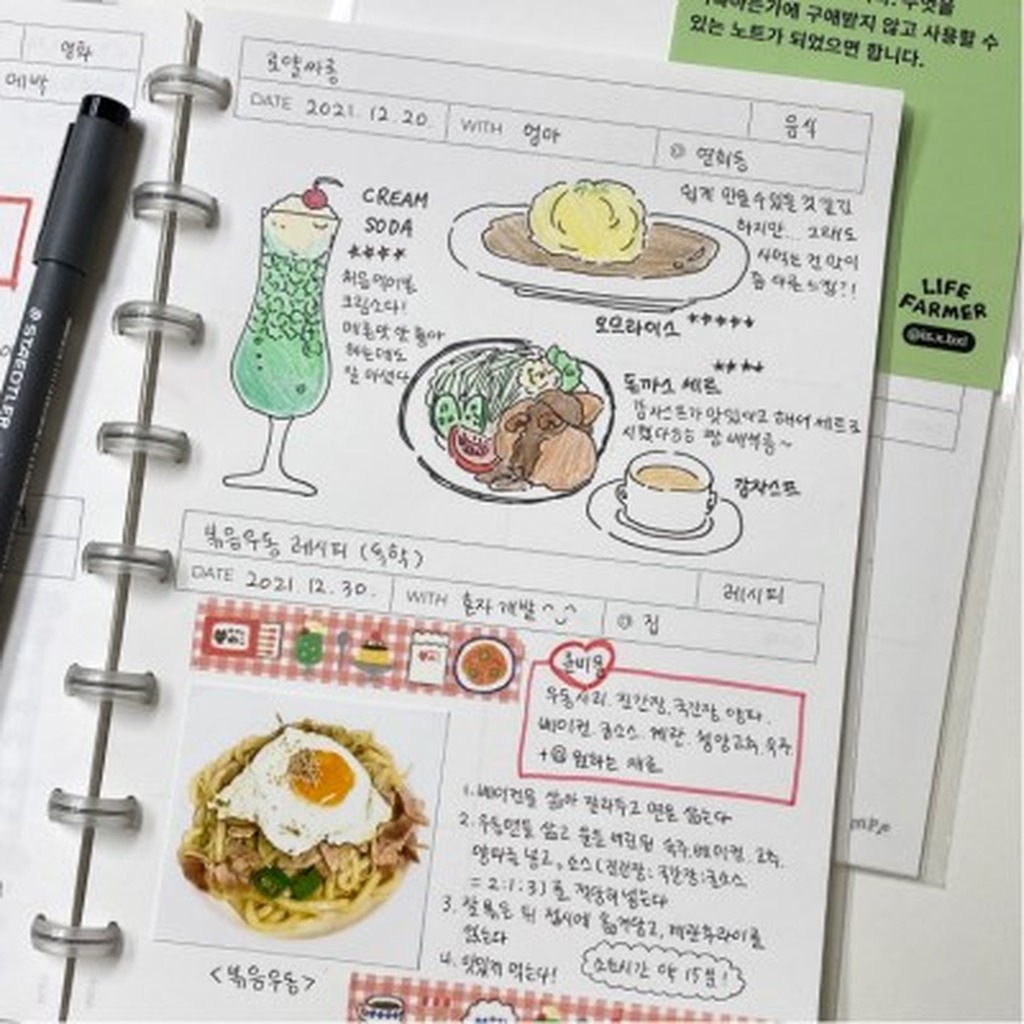 구애받지 않고 사용할 수
있는 노트가 되었으면 합니다.
LIFE
FARMER
영화
메박
STAEDTLER
로얄싸롱
음식
DATE 2021. 12. 20
WITH 엄마
@ 연희동
CREAM
SODA
****
처음 먹어본
크림소다!
메론맛 안 좋아
하는데도
잘 마셨다
쉽게 만들 수 있을 것 같긴
하지만... 그래도
사먹는 건 맛이
좀 다른 느낌?!
오므라이스 *****
****
돈까스 세트
감자스프가 맛있다고 해서 세트로
감자스프
볶음우동 레시피 (독학)
레시피
DATE 2021. 12. 30.
WITH 혼자 개발
@ 집
준비물
우동사리, 진간장, 국간장, 양파,
베이컨, 굴소스, 계란, 청양고추, 숙주
+@ 원하는 재료
1. 베이컨을 삶아 잘라두고 면을 삶는다
2. 우동면을 삶고 물을 버린 뒤 숙주, 베이컨, 고추,
양파를 넣고, 소스(진간장:국간장:굴소스
= 2:1:3)를 적당히 넣는다
3. 잘 볶은 뒤 접시에 옮겨담고, 계란후라이를
얹는다
4. 맛있게 먹는다!
소요시간 약 15분!
<볶음우동>